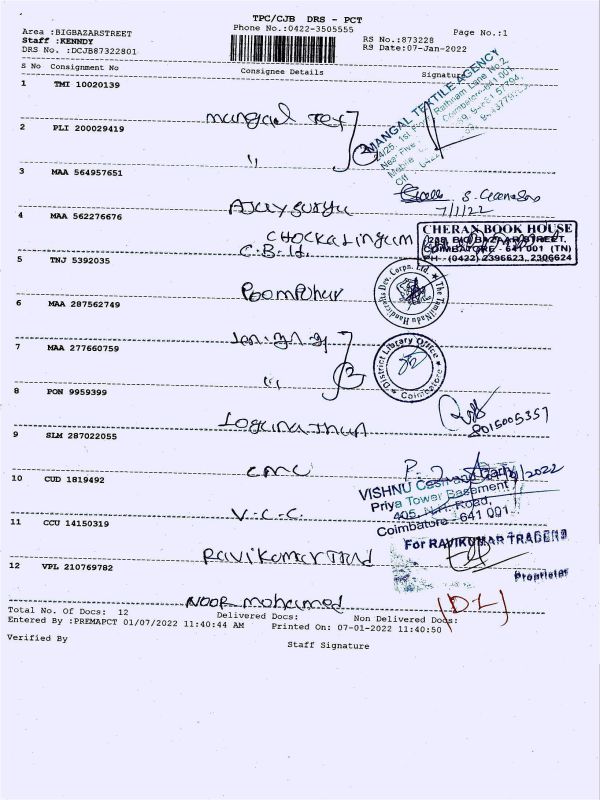 TPC/CJB DRS - PCT
Area :BIGBAZARSTREET
Phone No.:0422-3505555
Page No.:1
Staff :KENNDY
RS No.:873228
DRS No. :DCJB87322801
RS Date:07-Jan-2022
S No Consignment No Consignee Details Signature
1 TMI 10020139
Mangal Tex
MANGAL TEXTILE AGENCY
2 PLI 200029419
"
2
3 MAA 564957651
Ajaysurya
7/1/22
4 MAA 562276676
CHOCKALINGUM
C.B.H.
CHERAN BOOK HOUSE
BIG BAZAAR STREET,
COIMBATORE - 641 001 (TN)
PH - (0422) 2396623, 2306624
5 TNJ 5392035
Poompuhar
The TamilNadu Handicrafts Dev. Corpn. Ltd.
6 MAA 287562749
7 MAA 277660759
"
2
District Library Office
Coimbatore
8 PON 9959399
Loganathan
8015005357
9 SLM 287022055
CMC
10 CUD 1819492
V.C.C.
VISHNU Cash and Carry
Priya Tower Basement
405, N.H. Road,
Coimbatore - 641 001
11 CCU 14150319
Ravikumar Trad
For RAVIKUMAR TRADERS
Proprietor
12 VPL 210769782
Noor mohamed
Total No. Of Docs: 12 Delivered Docs: Non Delivered Docs:
Entered By :PREMAPCT 01/07/2022 11:40:44 AM Printed On: 07-01-2022 11:40:50
Verified By
Staff Signature